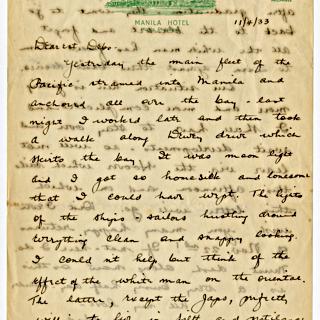 MANILA HOTEL
11/4/33
Dearest Debo:
Yesterday the main fleet of the
Pacific streamed into Manila and
anchored all over the bay - last
night I worked late and then took
a walk along Dewey drive which
skirts the bay. It was moon light
and I got so homesick and lonesome
that I could have wept. The lights
of the ships & sailors hustling around
everything clean and snappy looking.
I couldn't help but think of the
effect of the white man on the oriental.
The latter, except the Japs, perfectly
willing to live in filth and